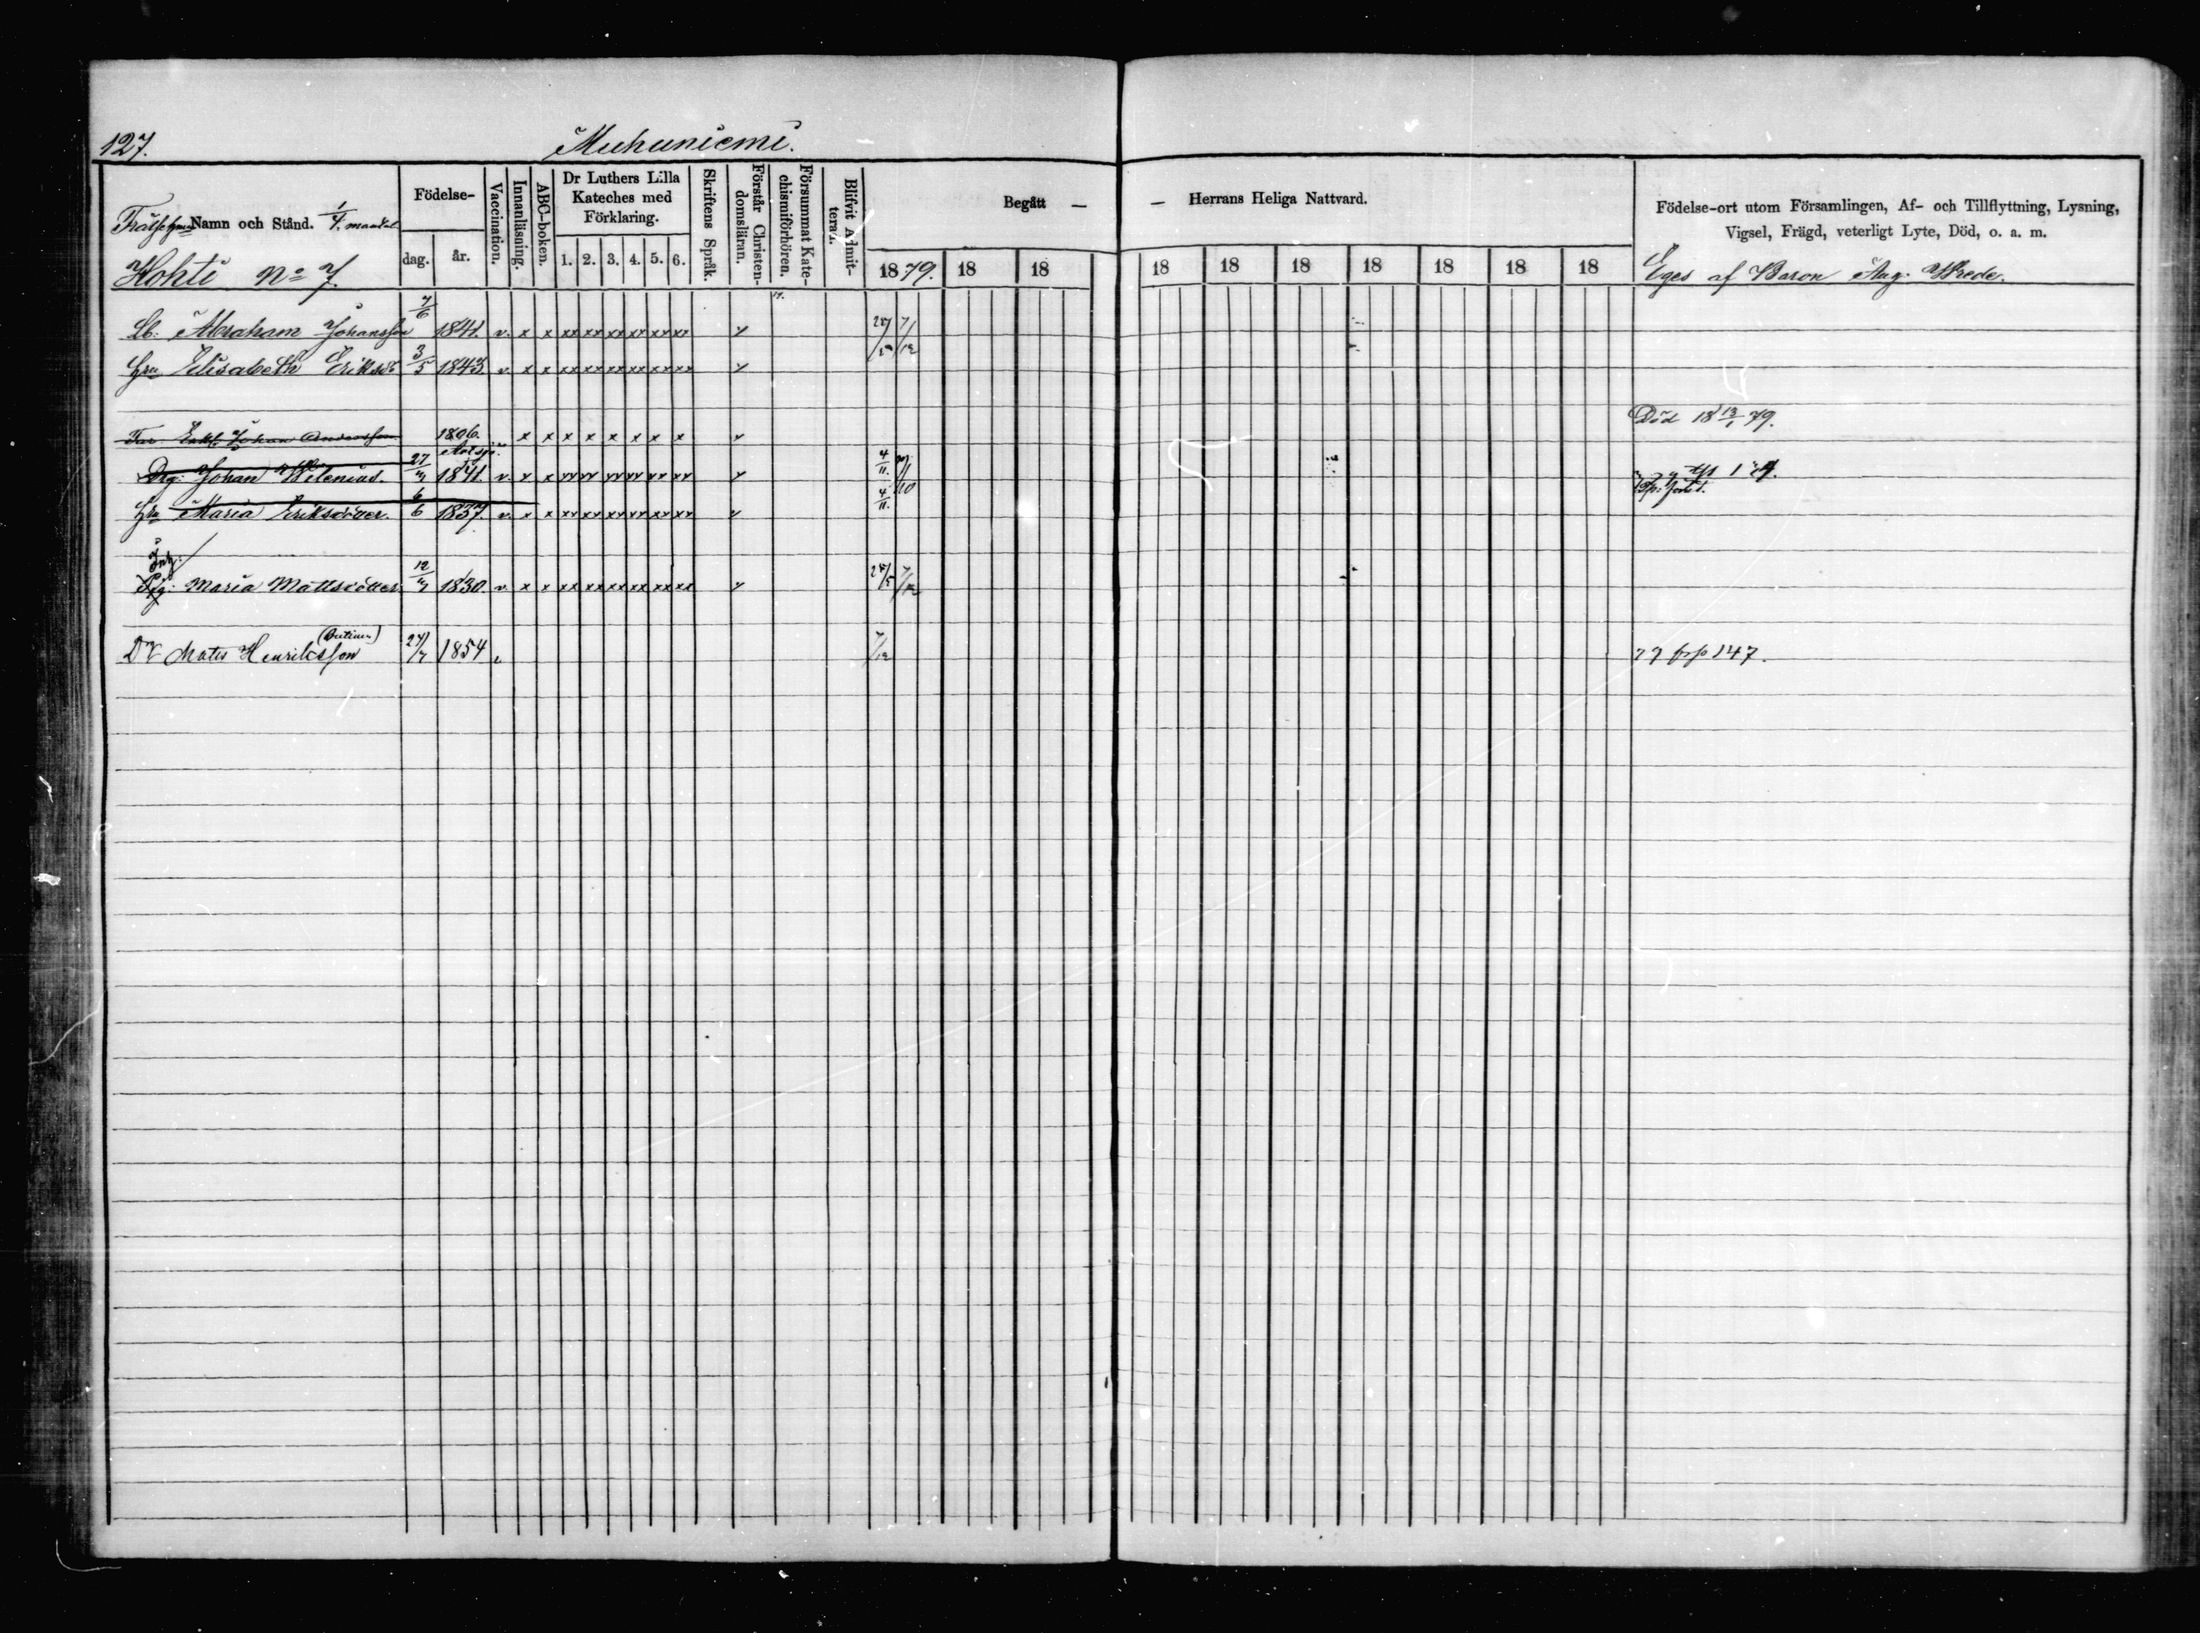 127. Muhuniemi.
Frälsehem. Namn och Stånd. 1/4 mantal.
Födelse-
dag. år.
Vaccination.
Innanläsning.
ABC-boken.
Dr Luthers Lilla
Kateches med
Förklaring.
1. 2. 3. 4. 5. 6.
Skriftens Språk.
Förstår Christen-
domsläran.
Försummat Kate-
chismiförhören.
Blifvit Admit-
terad.
Begått —
— Herrans Heliga Nattvard.
1879. 18 18 18 18 18 18 18 18 18
Födelse-ort utom Församlingen, Af- och Tillflyttning, Lysning,
Vigsel, Frägd, veterligt Lyte, Död, o. a. m.
Hohti No 7. Eges af Baron Aug. Wrede.
Lb: Abraham Johansson 7/6 1841. v. x x xx xx xx xx xx xx v 25/5 7/12
Hru Elisabeth Eriksd 3/5 1843 v. x x xx xx xx xx xx xx v
Enkl. Johan Andersson 1806. x x x x x x x x v Död 18 13/1 79.
Drg: Johan Welenius. 27/7 1841. v. x x xx xx xx xx xx xx v 4/11
Hru Maria Eriksdotter. 6/6 1837. v. x x xx xx xx xx xx xx v 4/11
Inh:
Maria Mattsdotter 12/7 1830. v x x xx xx xx xx xx xx v 25/5 7/12
Dr Mats Henriksson 27/7 1854 v 7/12 77 frfr 147.